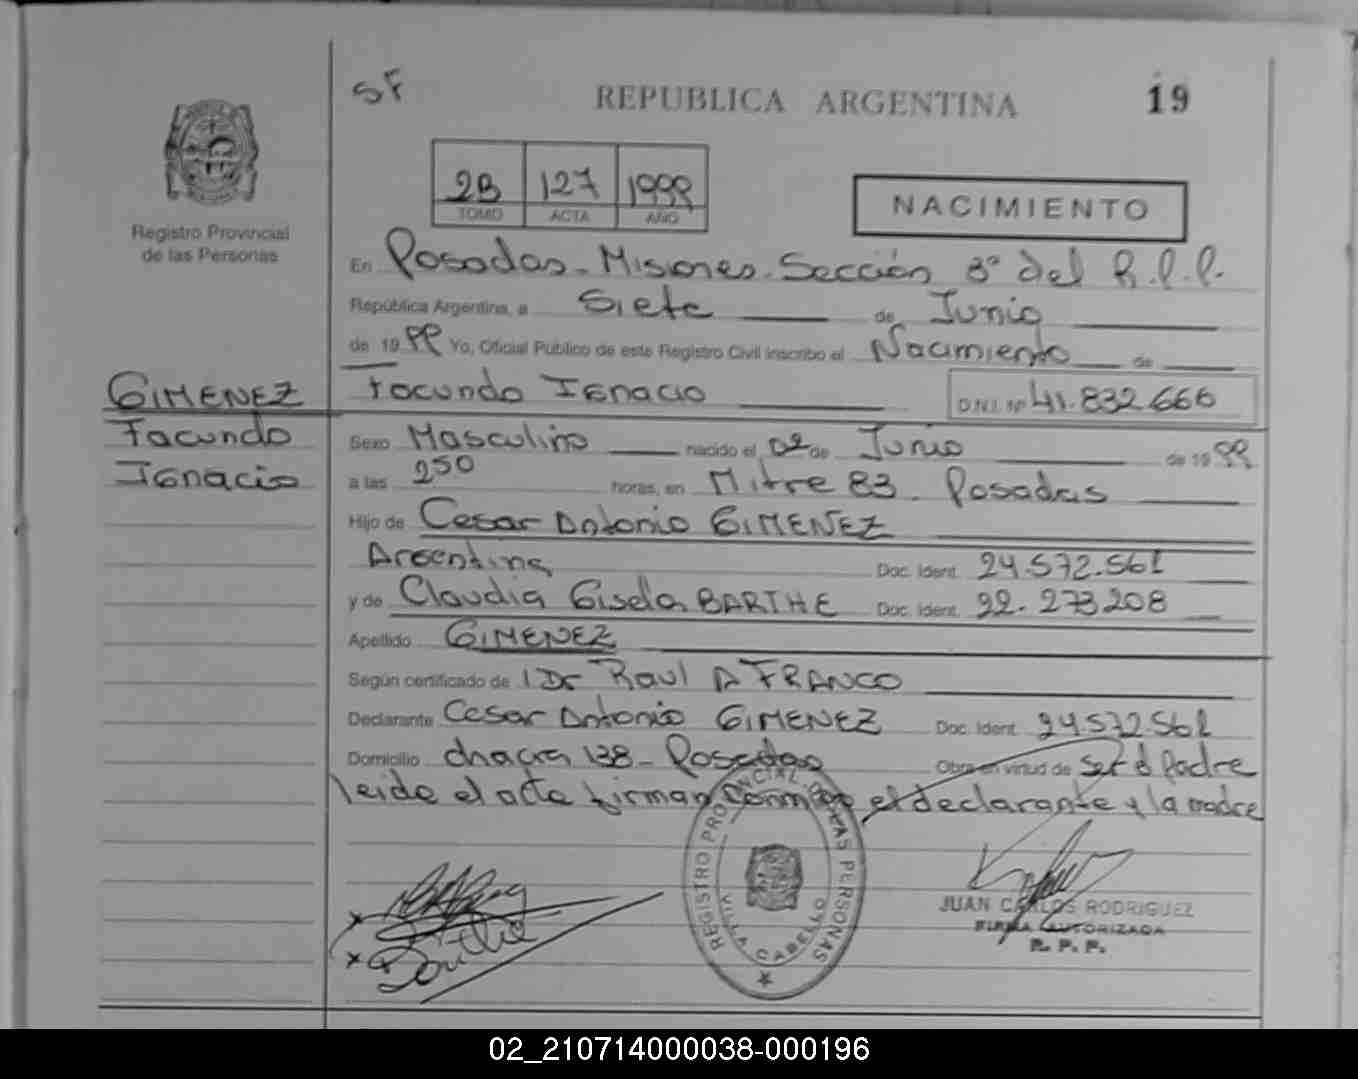 SF
REPUBLICA ARGENTINA
19
2B 127 1999
TOMO ACTA AÑO
NACIMIENTO
Registro Provincial
de las Personas
En Posadas - Misiones - Sección 3° del R.P.P.
República Argentina, a Siete de Junio
de 1999 Yo, Oficial Público de este Registro Civil inscribo el Nacimiento de
GIMENEZ
Facundo
Ignacio
Facundo Ignacio D.N.I. Nº 41.832.666
Sexo Masculino nacido el 02 de Junio de 1999
a las 250 horas, en Mitre 83 - Posadas
Hijo de Cesar Antonio GIMENEZ
Argentina Doc. Ident. 24.572.561
y de Claudia Gisela BARTHE Doc. Ident. 22.273208
Apellido GIMENEZ
Según certificado de Dr Raul A FRANCO
Declarante Cesar Antonio GIMENEZ Doc. Ident. 24572.561
Domicilio chacra 138 - Posadas Obra en virtud de ser el Padre
leida el acta firman el declarante y la madre
REGISTRO PROVINCIAL DE LAS PERSONAS
VILLA CABELLO
JUAN CARLOS RODRIGUEZ
FIRMA AUTORIZADA
R. P. P.
02_210714000038-000196